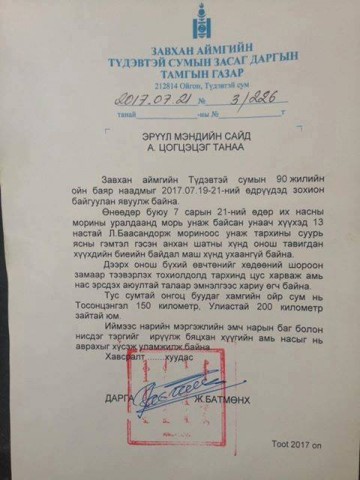 ЗАВХАН АЙМГИЙН
ТҮДЭВТЭЙ СУМЫН ЗАСАГ ДАРГЫН
ТАМГЫН ГАЗАР
212814 Ойгон, Түдэвтэй сум
2017.07.21 № 3/226
танай №
ЭРҮҮЛ МЭНДИЙН САЙД
А. ЦОГЦЭЦЭГ ТАНАА
Завхан аймгийн Түдэвтэй сумын 90 жилийн
ойн баяр наадмыг 2017.07.19-21-ний өдрүүдэд зохион
байгуулан явуулж байна.
Өнөөдөр буюу 7 сарын 21-ний өдөр их насны
морины уралдаанд морь унаж байсан унаач хүүхэд 13
настай Л.Баасандорж мориноос унаж тархины суурь
ясны гэмтэл гэсэн анхан шатны хүнд онош тавигдан
хүүхдийн биеийн байдал маш хүнд ухаангүй байна.
Дээрх онош бүхий өвчтөнийг хөдөөний шороон
замаар тээвэрлэх тохиолдолд тархинд цус харваж амь
нас эрсдэх аюултай талаар эмнэлгээс хариу өгч байна.
Тус сумтай онгоц буудаг хамгийн ойр сум нь
Тосонцэнгэл 150 километр, Улиастай 200 километр
зайтай юм.
Иймээс нарийн мэргэжлийн эмч нарын баг болон
нисдэг тэргийг ирүүлж бяцхан хүүгийн амь насыг нь
аврахыг хүсэж уламжилж байна.
Хавсралт ........ хуудас
ДАРГА Ж.БАТМӨНХ
Toot 2017 on